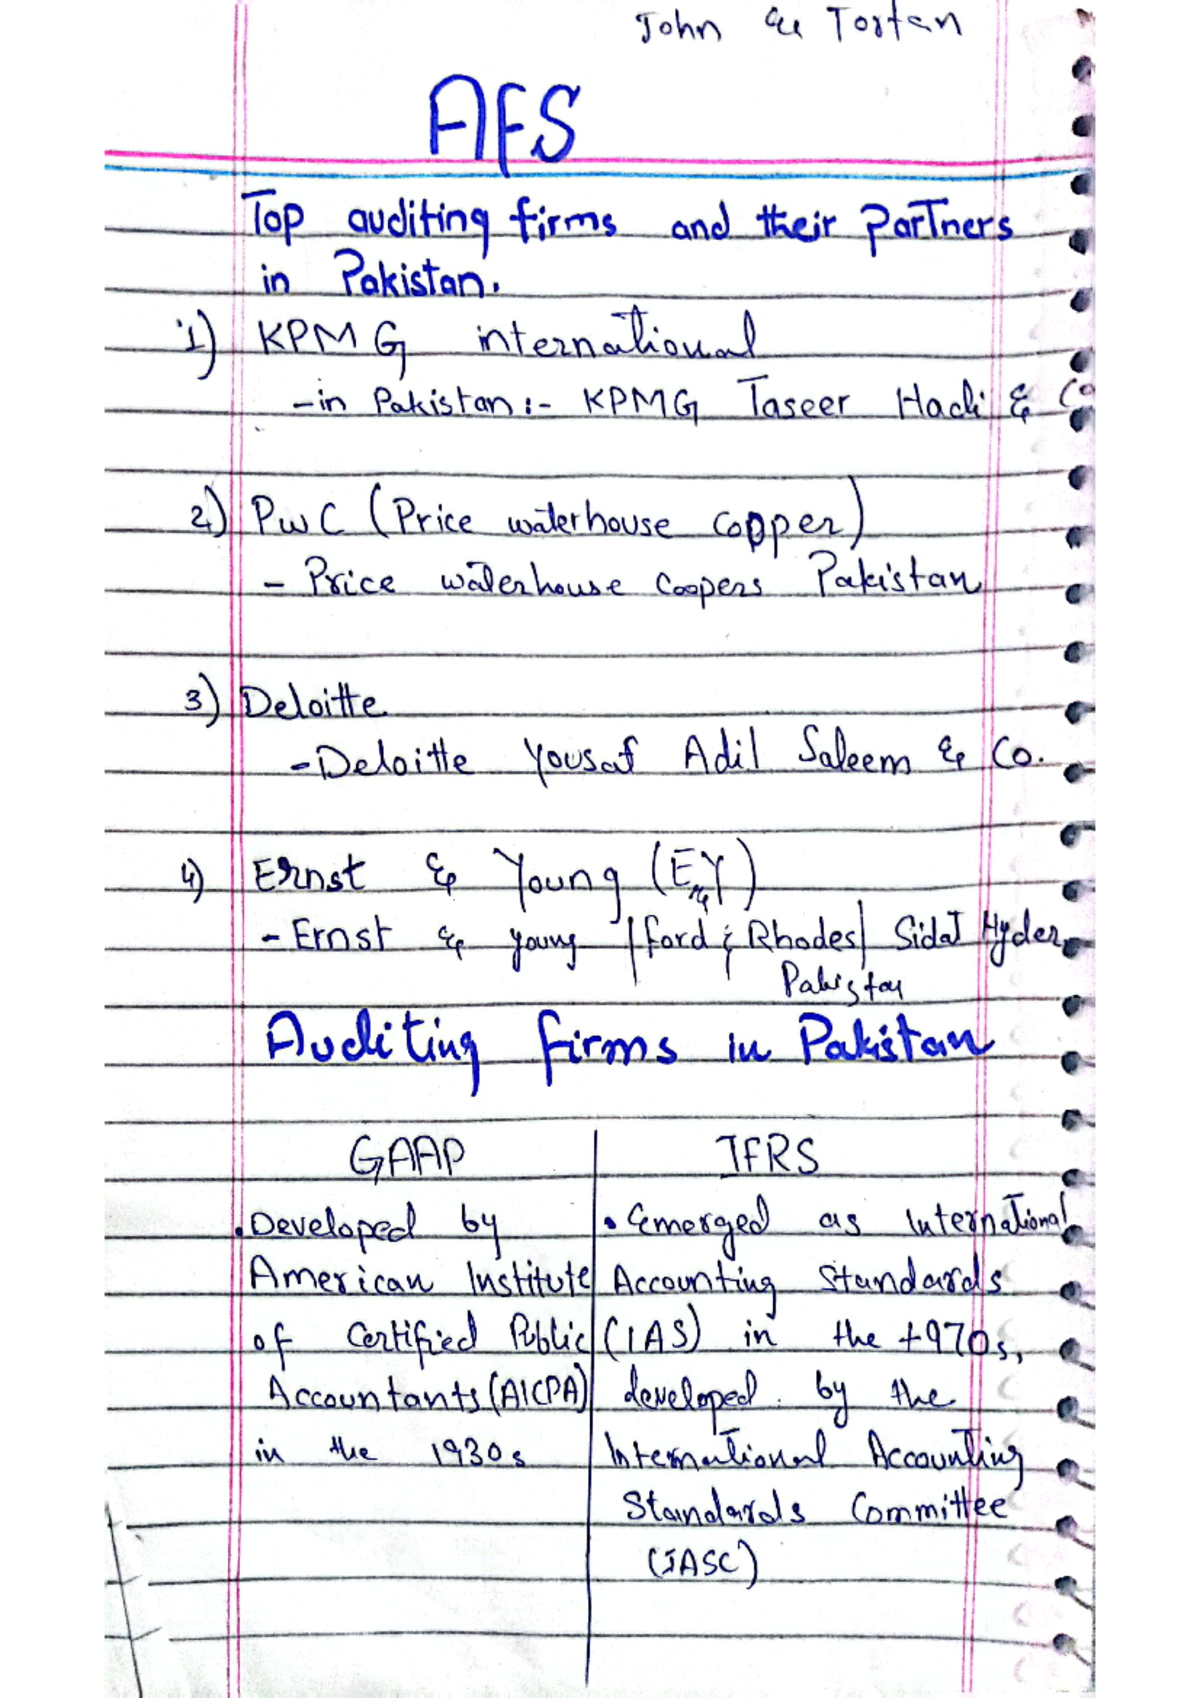 John & Tostan
AFS
Top auditing firms and their Partners
in Pakistan.
1) KPMG international
-in Pakistan:- KPMG Taseer Hadi & Co
2) PwC (Price waterhouse copper)
- Price waterhouse Coopers Pakistan
3) Deloitte
-Deloitte Yousaf Adil Saleem & Co.
4) Ernst & Young (EY)
- Ernst & young | ford & Rhodes | Sidat Hyder
Pakistan
Auditing firms in Pakistan
GAAP
• Developed by
American Institute
of Certified Public
Accountants (AICPA)
in the 1930s
IFRS
• Emerged as International
Accounting Standards
(IAS) in the 1970s,
developed by the
International Accounting
Standards Committee
(IASC)